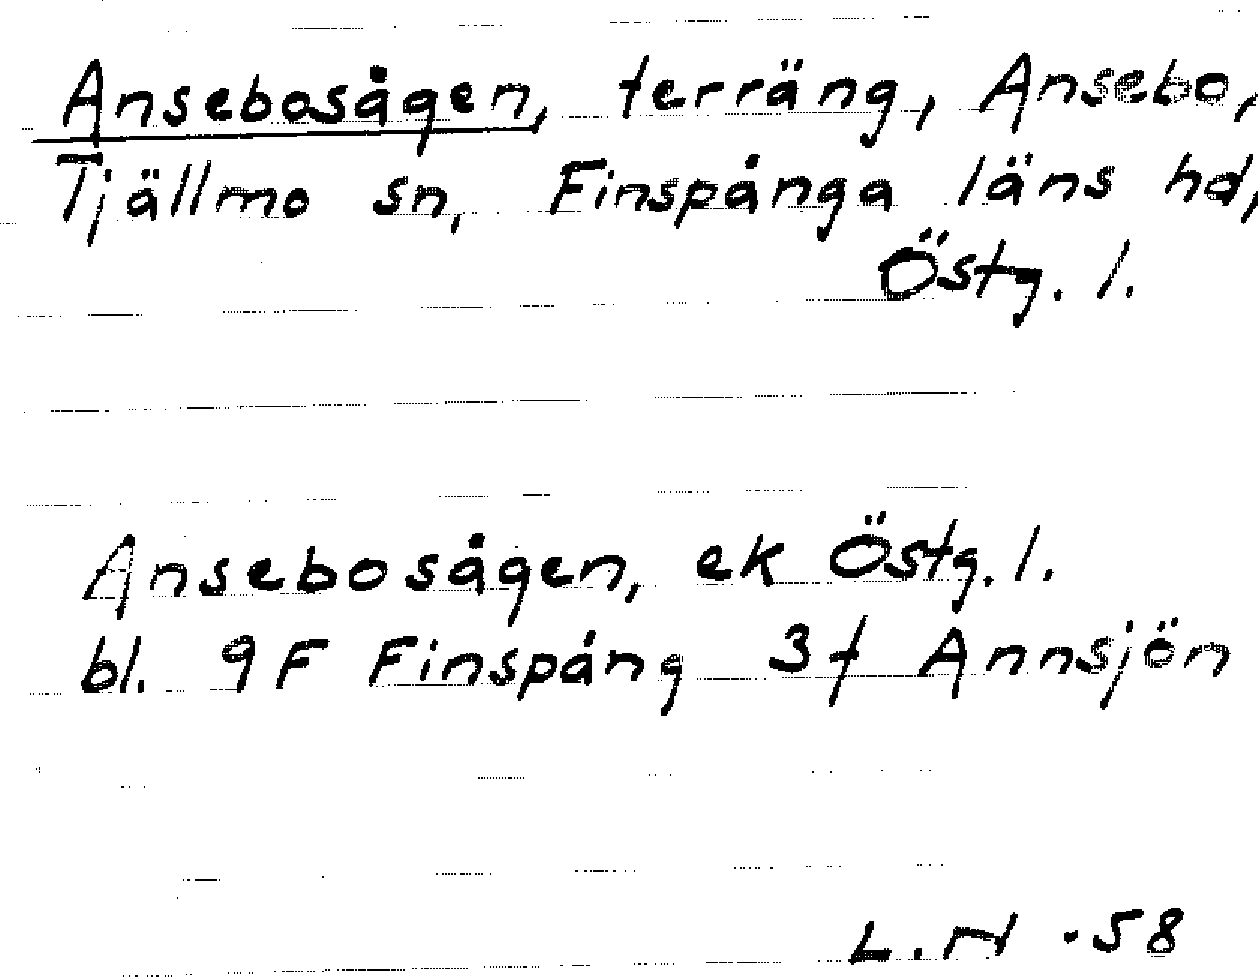 Ansebosågen, terräng, Ansebo,
Tjällmo sn, Finspånga läns hd,
Östg. l.
Ansebosågen, ek Östg. l.
bl. 9F Finspång 3f Annsjön
L.N -58